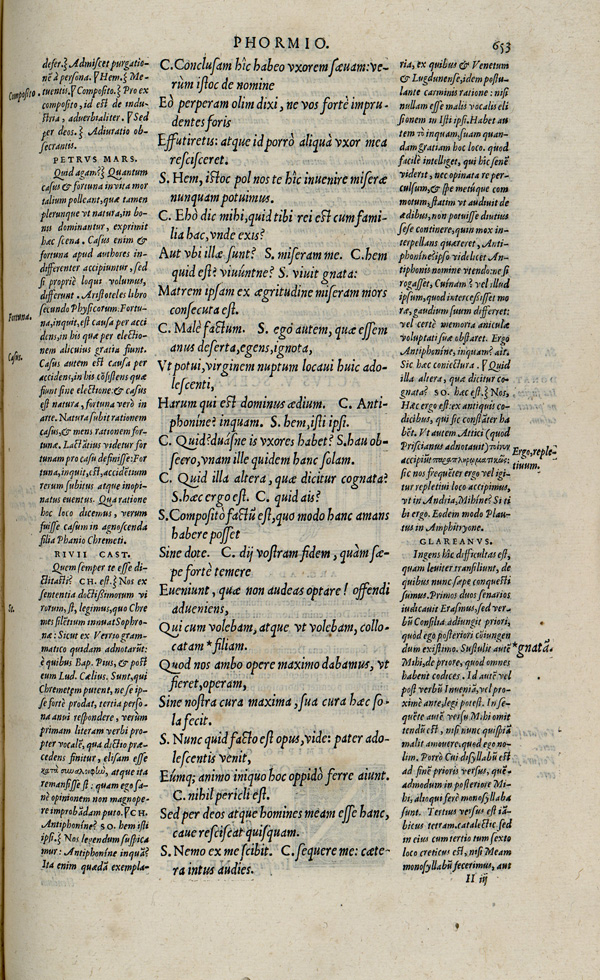 PHORMIO.
653
deser.ξ Admiscet purgatio-
nẽ à persona. ꝟHem.ξ Me-
tuentis. ꝟComposito.ξ Pro ex
composito, id est de indu-
stria, aduerbialiter. ꝟSed
per deos.ξ Adiuratio ob-
secrantis.
PETRVS MARS.
Quid agam?ξ Quantum
casus & fortuna inuita mor
talium polleant, quæ tamen
plerunque vt natura, in bo-
nis dominantur, exprimit
hæc scena. Casus enim &
fortuna apud authores in-
differenter accipiuntur, sed
si propriè loqui volumus,
differunt. Aristoteles libro
secundo Physicorum. Fortu-
na, inquit, est causa per acci
dens, in his quæ per electio-
nem alicuius gratia fiunt.
Casus autem est causa per
accidens, in his cõsistens quæ
sunt sine electione: & casus
est natura, fortuna verò in
arte. Natura subit rationem
casus, & mens rationem for-
tunæ. Lactãtius videtur for
tunam pro casu definisse: For
tuna, inquit, est, accidẽtium
rerum subitus atque inopi-
natus euentus. Qua ratione
hoc loco dicemus, verum
fuisse casum in agnoscenda
filia Phanio Chremeti.
RIVII CAST.
Quem semper te esse di-
ctitasti? CH. est.ξ Nos ex
sententia doctissimorum vi
rorum, st, legimus, quo Chre
mes silẽtium innuat Sophro-
næ: Sicut ex Verrio gram-
matico quidam adnotarũt:
è quibus Bap. Pius, & post
eum Lud. Cælius. Sunt, qui
Chremetem putent, ne se ip-
se fortè prodat, tertia perso-
na anui respondere, verùm
primam literam verbi pro-
pter vocalẽ, qua dictio præ-
cedens finitur, elisam esse
atque ita
remansisse st: quam ego sa-
nè opinionem non magnope-
re improbãdam puto. ꝟCH.
Antiphonine? SO. hem isti
ipsi.ξ Nos legendum suspica
mur: Antiphonine inquã?
Ita enim quædã exempla-
Composito.
Fortuna.
Casus.
St.
C. Conclusam hîc habeo vxorem sæuam: ve-
rùm istoc de nomine
Eò perperam olim dixi, ne vos fortè impru-
dentes foris
Effutiretis: atque id porrò aliquà vxor mea
rescisceret.
S. Hem, istoc pol nos te hîc inuenire miseræ
nunquam potuimus.
C. Ehò dic mihi, quid tibi rei est cum fami-
lia hac, vnde exis?
Aut vbi illæ sunt? S. miseram me. C. hem
quid est? viuúntne? S. viuit gnata:
Matrem ipsam ex ægritudine miseram mors
consecuta est.
C. Malè factum. S. ego autem, quæ essem
anus deserta, egens, ignota,
Vt potui, virginem nuptum locaui huic ado-
lescenti,
Harum qui est dominus ædium. C. Anti-
phonine? inquam. S. hem, isti ipsi.
C. Quid? duásne is vxores habet? S. hau ob-
secro, vnam ille quidem hanc solam.
C. Quid illa altera, quæ dicitur cognata?
S. hæc ergo est. C. quid ais?
S. Compositò factũ est, quo modo hanc amans
habere posset
Sine dote. C. dij vostram fidem, quàm sæ-
pe fortè temere
Eueniunt, quæ non audeas optare! offendi
adueniens,
Qui cum volebam, atque vt volebam, collo-
catam *filiam.
Quod nos ambo opere maximo dabamus, vt
fieret, operam,
Sine nostra cura maxima, sua cura hæc so-
la fecit.
S. Nunc quid facto est opus, vide: pater ado-
lescentis venit,
Eúmq; animo iniquo hoc oppidò ferre aiunt.
C. nihil pericli est.
Sed per deos atque homines meam esse hanc,
caue resciscat quisquam.
S. Nemo ex me scibit. C. sequere me: cæte-
ra intus audies.
ria, ex quibus & Venetum
& Lugdunense, idem postu-
lante carminis ratione: nisi
nullam esse malis vocalis eli
sionem in Isti ipsi. Habet au
tem rò inquam, suam quan-
dam gratiam hoc loco. quod
facilè intelliget, qui hîc senẽ
viderit, nec opinata re per-
culsum, & spe metúque com
motum, statim vt audiuit de
ædibus, non potuisse diutius
sese continere, quin mox in-
terpellans quæreret, Anti-
phonine? ipso videlicet An-
tiphonis nomine vtendo: ne si
rogasset, Cuinam? vel illud
ipsum, quod intercessisset mo
ra, gaudium suum differret:
vel certè memoria aniculæ
voluptati suæ obstaret. Ergo
Antiphonine, inquam? ait.
Sic hæc coniectura. ꝟQuid
illa altera, quæ dicitur co-
gnata? SO. hæc est.ξ Nos,
Hæc ergo est: ex antiquis co-
dicibus, qui sic constãter ha
bẽt. Vt autem Attici (quod
Priscianus adnotauit)
accipiũt
sic nos frequẽter ergo vel igi
tur repletini loco accipimus,
vt in Andria, Mihine? Si ti
bi ergo. Eodem modo Plau-
tus in Amphitryone.
GLAREANVS.
Ingens hîc difficultas est,
quam leuiter transiliunt, de
quibus nunc sæpe conquesti
sumus. Primos duos senarios
iudicauit Erasmus, sed ver-
bũ Consilia adiungit priori,
quod ego posteriori cõiungen
dum existimo. Sustulit autẽ
Mihi, de priore, quod omnes
habent codices. Id autẽ vel
post verbũ Inueniã, vel pro-
ximè ante, legi potest. In se-
quẽte autẽ versu Mihi omit
tendũ est, nisi nunc quispiã
malit amouere, quod ego no-
lim. Porrò Cui disyllabũ est
ad finẽ prioris versus, quẽ-
admodum in posteriore Mi-
hi, alioqui ferè monosyllaba
sunt. Tertius versus est iã-
bicus tetram. catalectic. sed
in eius cum tertio tum sexto
loco creticus est, nisi Meam
monosyllabũ fecerimus, aut
Ergo, reple-
tiuum.
*gnatã.
II iij